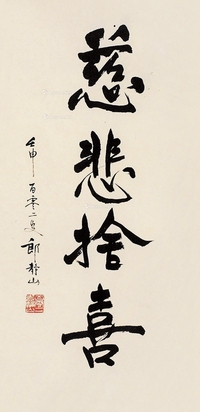 慈悲捨喜
壬申 百零二叟 郎靜山